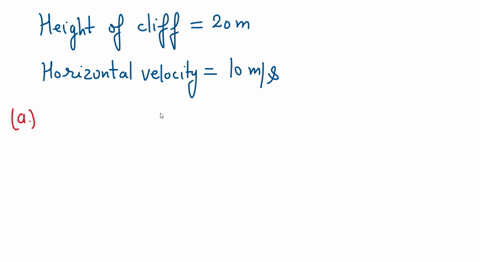 Height of cliff = 20 m
Horizontal velocity = 10 m/s
(a.)